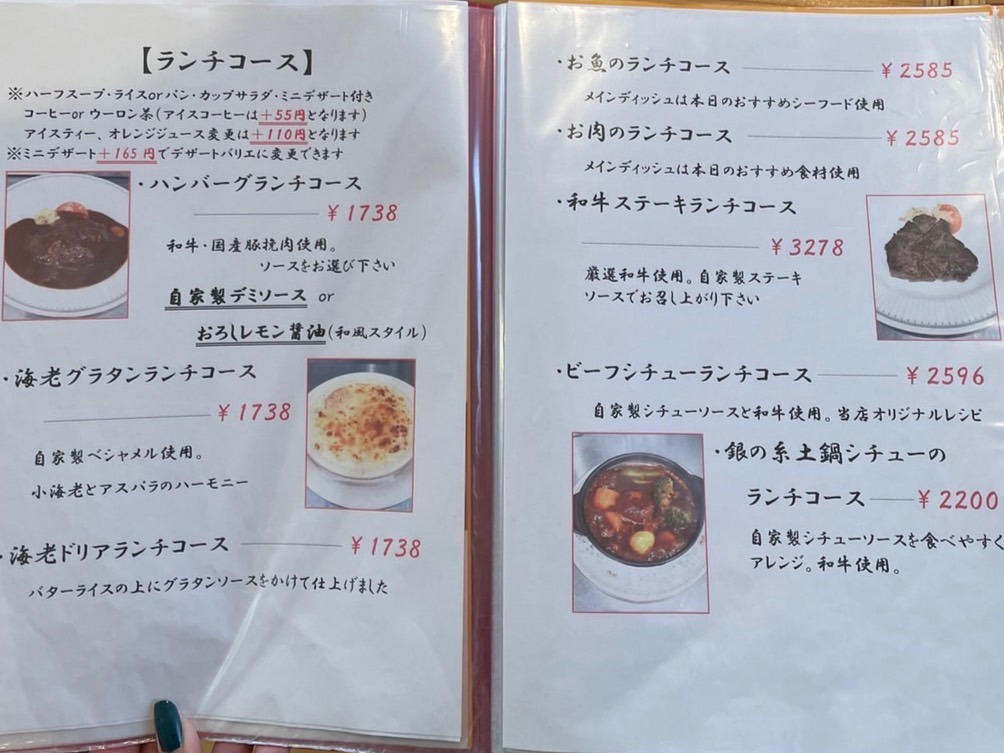 【ランチコース】
※ハーフスープ・ライスorパン・カップサラダ・ミニデザート付き
コーヒーor ウーロン茶(アイスコーヒーは+55円となります)
アイスティー、オレンジジュース変更は+110円となります
※ミニデザート+165円でデザートバリエに変更できます
・ハンバーグランチコース
¥1738
和牛・国産豚挽肉使用。
ソースをお選び下さい
自家製デミソース or
おろしレモン醤油(和風スタイル)
・海老グラタンランチコース
¥1738
自家製ベシャメル使用。
小海老とアスパラのハーモニー
・海老ドリアランチコース ¥1738
バターライスの上にグラタンソースをかけて仕上げました
・お魚のランチコース ¥2585
メインディッシュは本日のおすすめシーフード使用
・お肉のランチコース ¥2585
メインディッシュは本日のおすすめ食材使用
・和牛ステーキランチコース
¥3278
厳選和牛使用。自家製ステーキ
ソースでお召し上がり下さい
・ビーフシチューランチコース ¥2596
自家製シチューソースと和牛使用。当店オリジナルレシピ
・銀の糸土鍋シチューの
ランチコース ¥2200
自家製シチューソースを食べやすく
アレンジ。和牛使用。